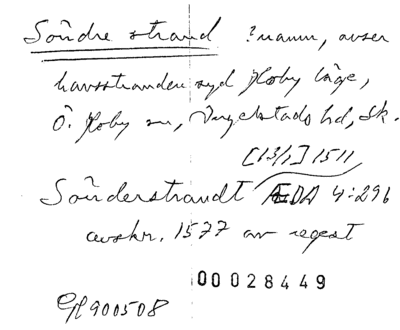 Söndre strand ?namn, avser
havsstranden syd Hoby läge,
Ö. Hoby sn, Ingelstads hd, Sk.
[13/1] 1511
Sönderstrandt ÆDA 4:296
avskr. 1577 av regest
00028449
900508